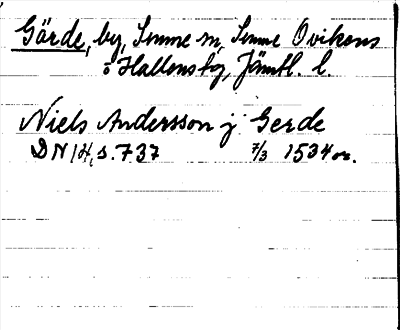 Gärde, by, Sunne sn, Sunne Ovikens
o Hallens tg, Jämtl. l.
Niels Andersson j Gerde
DN 14, s. 737 7/3 1534 or.